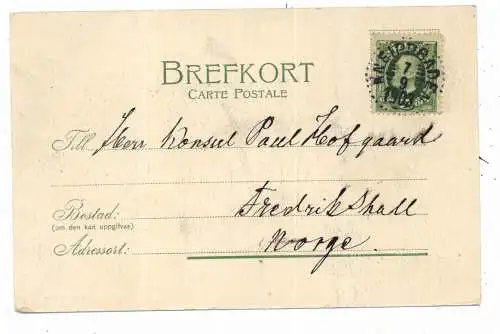 BREFKORT
CARTE POSTALE
Till Herr Konsul Paul Hofgaard
Bostad: Fredrikshall
(om den kan uppgifvas)
Adressort: Norge.